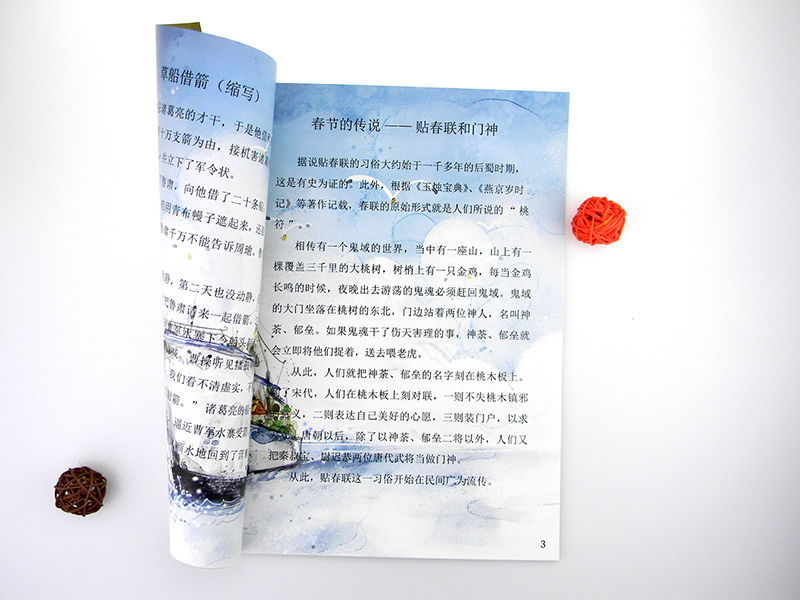 草船借箭（缩写）
诸葛亮的才干，于是他
十万支箭为由，接机害诸葛
共立下了军令状。
鲁肃，向他借了二十条船
用青布幔子遮起来，还
肃千万不能告诉周瑜。
静，第二天也没动静，
把鲁肃请来一起借箭。
曹操听见
我们看不清虚实，
射箭。”诸葛亮的
逼近曹军水寨受箭
水地回到了
春节的传说 —— 贴春联和门神
据说贴春联的习俗大约始于一千多年的后蜀时期，
这是有史为证的。此外，根据《玉烛宝典》、《燕京岁时
记》等著作记载，春联的原始形式就是人们所说的“ 桃
符 ”。
相传有一个鬼域的世界，当中有一座山，山上有一
棵覆盖三千里的大桃树，树梢上有一只金鸡，每当金鸡
长鸣的时候，夜晚出去游荡的鬼魂必须赶回鬼域。鬼域
的大门坐落在桃树的东北，门边站着两位神人，名叫神
荼、郁垒。如果鬼魂干了伤天害理的事，神荼、郁垒就
会立即将他们捉着，送去喂老虎。
从此，人们就把神荼、郁垒的名字刻在桃木板上。
了宋代，人们在桃木板上刻对联，一则不失桃木镇邪
义，二则表达自己美好的心愿，三则装门户，以求
唐朝以后，除了以神荼、郁垒二将以外，人们又
把秦叔宝、尉迟恭两位唐代武将当做门神。
从此，贴春联这一习俗开始在民间广为流传。
3